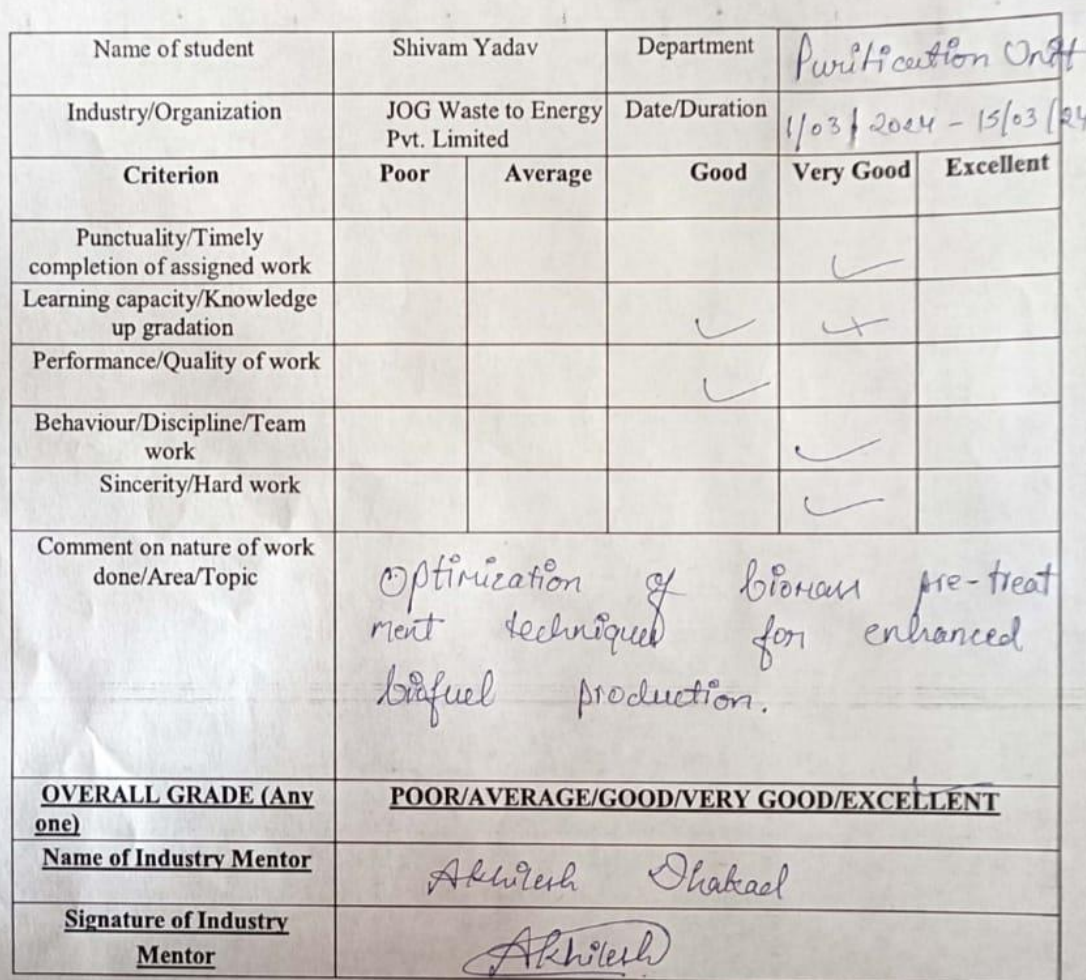 Name of student Shivam Yadav Department Purification Unit
Industry/Organization JOG Waste to Energy Date/Duration 1/03/2024 - 15/03/24
Pvt. Limited
Criterion Poor Average Good Very Good Excellent
Punctuality/Timely
completion of assigned work
Learning capacity/Knowledge
up gradation
Performance/Quality of work
Behaviour/Discipline/Team
work
Sincerity/Hard work
Comment on nature of work
done/Area/Topic
Optimization of biomass pre-treat
ment techniques for enhanced
biofuel production.
OVERALL GRADE (Any POOR/AVERAGE/GOOD/VERY GOOD/EXCELLENT
one)
Name of Industry Mentor Akhilesh
Signature of Industry
Mentor Akhilesh